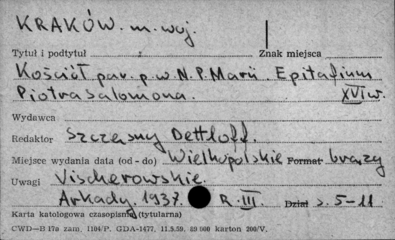 KRAKÓW. m. woj.
Tytuł i podtytuł Znak miejsca
Kościół par. p. w. N. P. Marii. Epitafium
Piotra Salomona. XVI w.
Wydawca
Redaktor Szczęsny Dettloff.
Miejsce wydania data (od - do) Wielkopolskie Format brązy
Uwagi Vischerowskie.
Arkady. 1937. R. III. Dział s. 5-11
Karta katologowa czasopisma (tytularna)
CWD—B 17a zam. 1104/P. GDA-1477, 11.5.59, 80 000 karton 200/V.